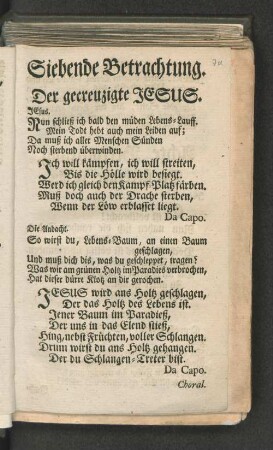 Siebende Betrachtung.
Der gecreuzigte JESUS.
JEsus.
Nun schließ ich bald den müden Lebens-Lauff.
Mein Todt hebt auch mein Leiden auf;
Da muß ich aller Menschen Sünden
Noch sterbend überwinden.
Ich will kämpfen, ich will streiten,
Bis die Hölle wird besiegt.
Werd ich gleich den Kampf-Platz färben.
Muß doch auch der Drache sterben,
Wenn der Löw erblasset liegt.
Da Capo.
Die Andacht.
So wirst du, Lebens-Baum, an einen Baum
geschlagen,
Und muß dich dis, was du geschleppet, tragen?
Was wir am grünen Holtz im Paradies verbrochen,
Hat dieser dürre Klotz an dir gerochen.
JESUS wird ans Holtz geschlagen,
Der das Holtz des Lebens ist.
Jener Baum im Paradieß,
Der uns in das Elend stieß,
Hing, nebst Früchten, voller Schlangen.
Drum wirst du ans Holtz gehangen.
Der du Schlangen-Treter bist.
Da Capo.
Choral.